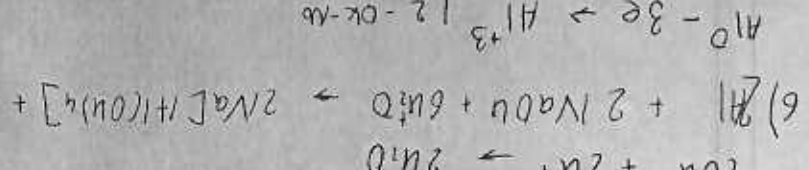 → 2H₂O
6) 2Al + 2NaOH + 6H₂O → 2Na[Al(OH)₄] +
Al⁰ - 3e → Al⁺³ | 2 -